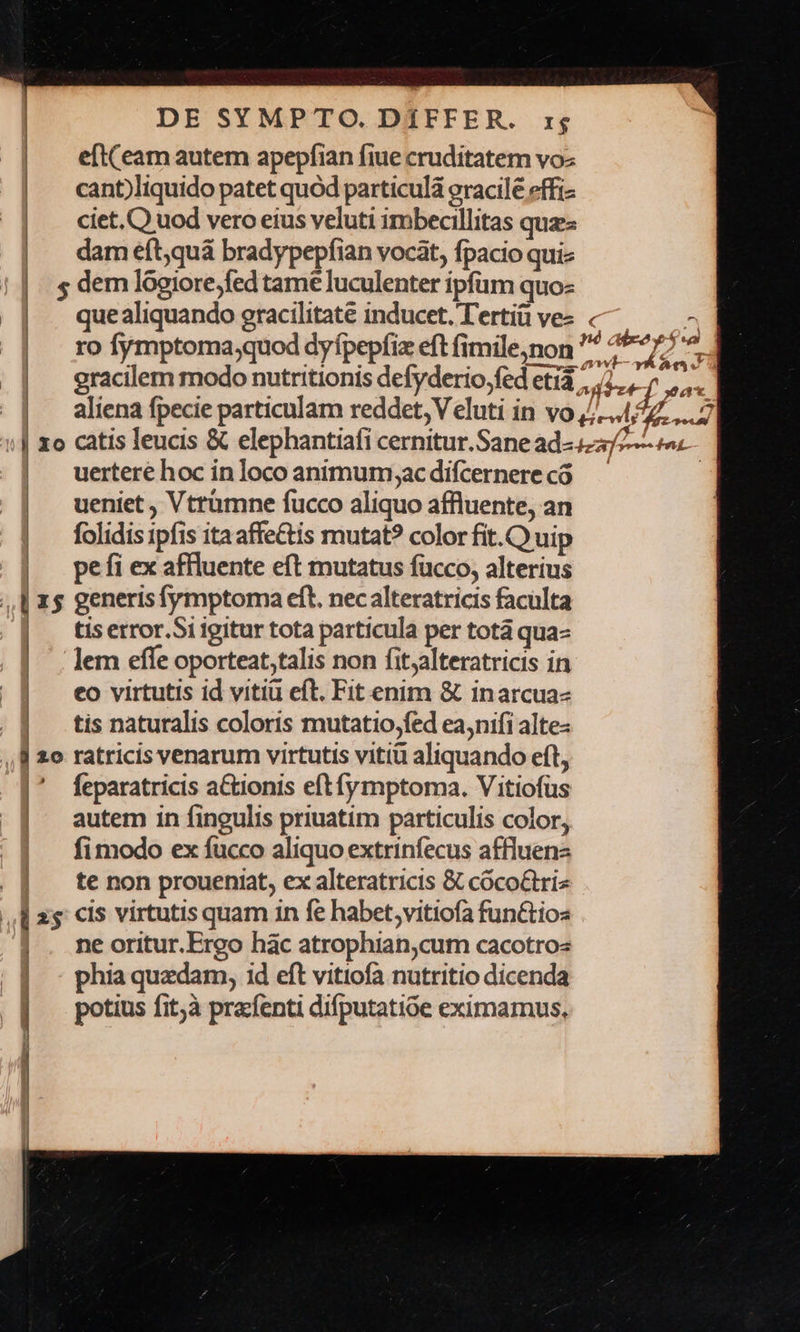 DE SYMPTO. DIFFER. 15
eſt(eam autem apepſian ſiue cruditatem vo⸗
cant)liquido patet quód particulã gracilẽ effi⸗
ciet.Quod vero eius veluti imbecillitas quæ⸗
dam eſt,quã bradypepſian vocãt, ſpacio qui⸗
5 dem lõgiore,ſed tamẽ luculenter ipſum quo⸗
quealiquando gracilitatẽ inducet. Tertiũ ve⸗
ro ſymptoma,quod dyſpepſiæ eſt ſimile,non
gracilem modo nutritionis deſyderio,ſed etiã
aliena ſpecie particulam reddet, Veluti in vo
10 catis leucis & elephantiaſi cernitur.Sane ad⸗
uertere hoc in loco animum,ac diſcernere cõ
ueniet, Vtrùmne ſucco aliquo affluente, an
ſolidis ipſis ita affectis mutat² color fit.Quip
pe ſi ex affluente eſt mutatus ſucco, alterius
15 generis ſymptoma eſt. nec alteratricis faculta
tis error.Si igitur tota particula per totã qua⸗
lem eſſe oporteat,talis non fit,alteratricis in
eo virtutis id vitiũ eſt. Fit enim & in arcua⸗
tis naturalis coloris mutatio,ſed ea,niſi alte⸗
20 ratricis venarum virtutis vitiũ aliquando eſt,
ſeparatricis actionis eſt ſymptoma. Vitioſus
autem in ſingulis priuatim particulis color,
ſi modo ex ſucco aliquo extrinſecus affluen⸗
te non proueniat, ex alteratricis & cõcoctri⸗
25 cis virtutis quam in ſe habet,vitioſa functio⸗
ne oritur.Ergo hãc atrophian,cum cacotro⸗
phia quædam, id eſt vitioſa nutritio dicenda
potius ſit,à præſenti diſputatiõe eximamus.